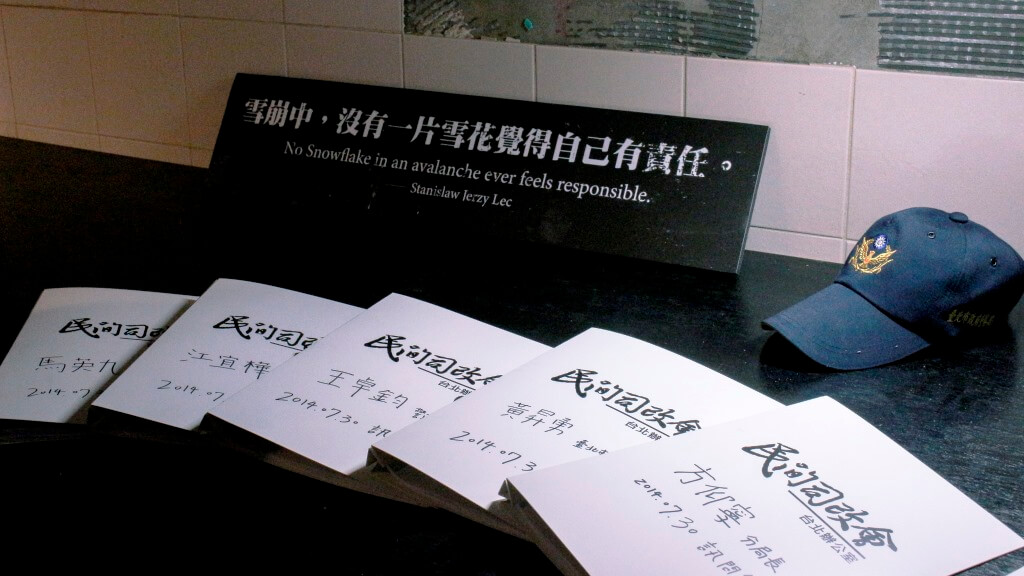 雪崩中，沒有一片雪花覺得自己有責任。
No Snowflake in an avalanche ever feels responsible.
Stanislaw Jerzy Lec
民间司改
馬英九
2014.07
民间司改
江宜樺
2014.07
民间司改會
台北辦
王卓鈞
2014.07.30 訊
民间司改會
台北辦
黃昇勇
2014.07.3
民间司改會
台北辦公室
方仰寧 分局長
2014.07.30 訊問